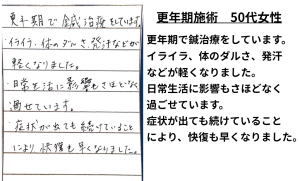 更年期で鍼治療をしています。
・イライラ、体のダルさ、発汗などが
軽くなりました。
・日常生活に影響もさほどなく
過せています。
・症状が出ても続けていること
により快復も早くなりました。
更年期施術 50代女性
更年期で鍼治療をしています。
イライラ、体のダルさ、発汗
などが軽くなりました。
日常生活に影響もさほどなく
過ごせています。
症状が出ても続けていること
により、快復も早くなりました。